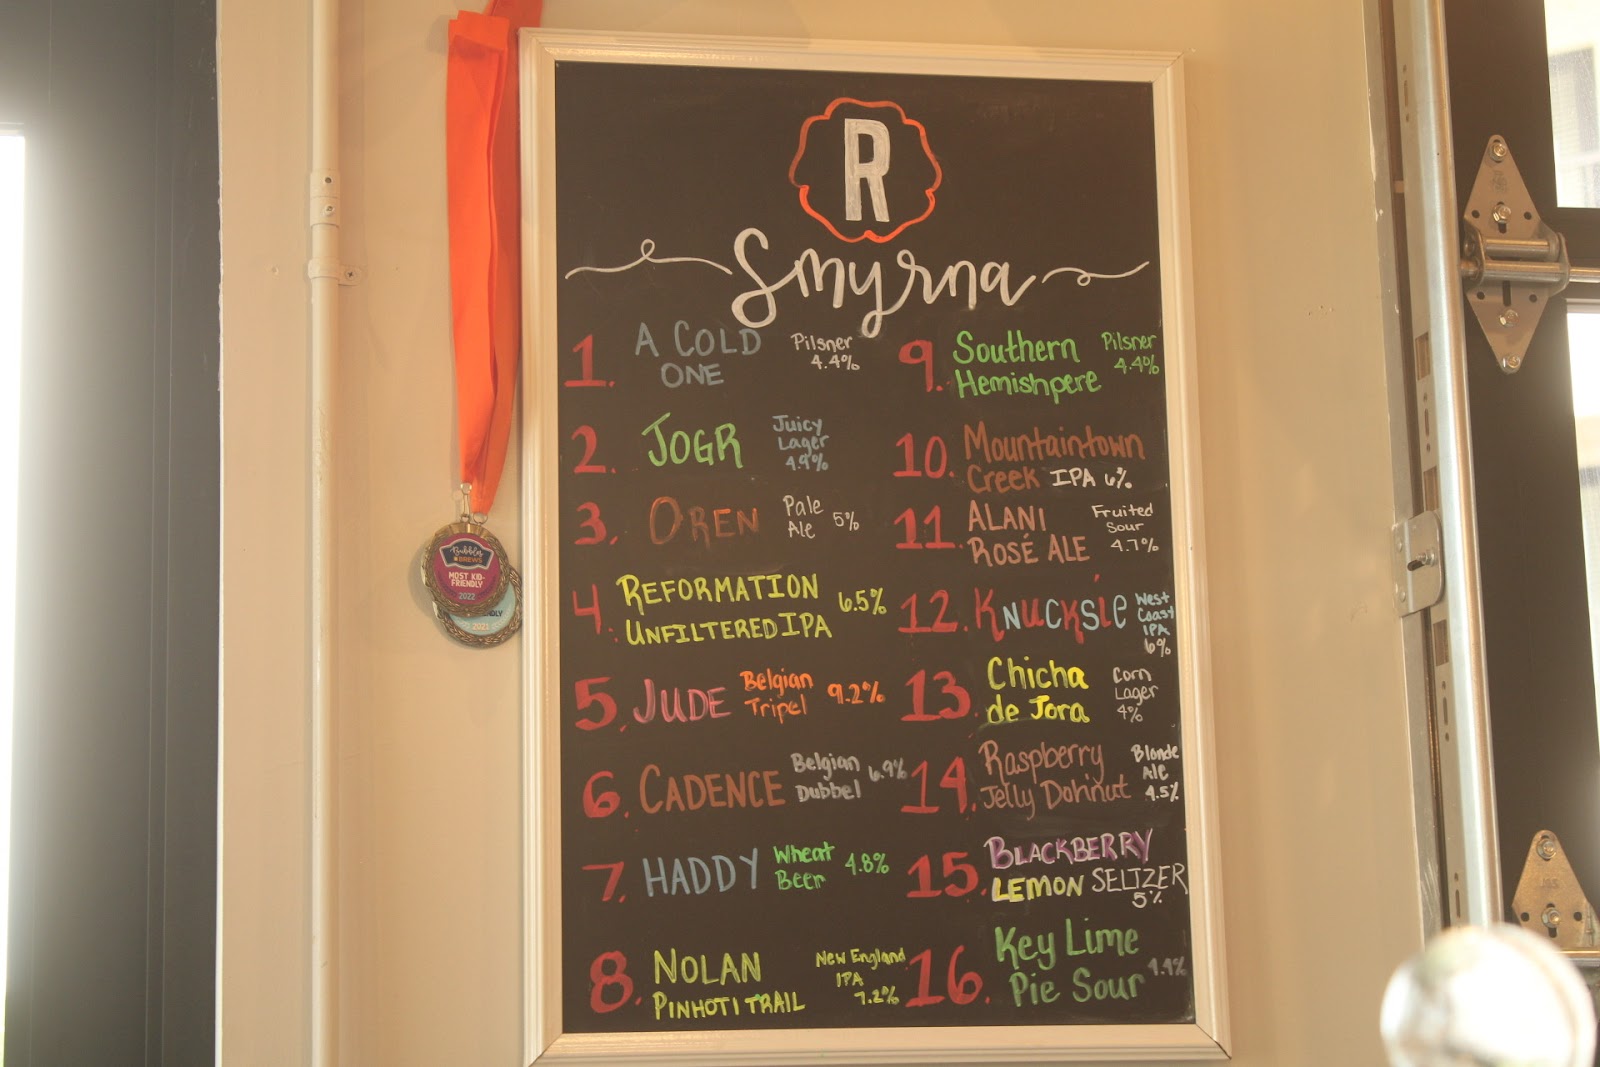 R
Smyrna
1. A COLD
ONE
Pilsner
4.4%
2. JOGR
Juicy
Lager
4.9%
3. OREN
Pale
Ale 5%
4. REFORMATION
UNFILTERED IPA
6.5%
5. JUDE
Belgian
Tripel
9.2%
6. CADENCE
Belgian
Dubbel
6.9%
7. HADDY
Wheat
Beer
4.8%
8. NOLAN
PINHOTI TRAIL
New England
IPA
7.2%
9. Southern
Hemishpere
Pilsner
4.4%
10. Mountaintown
Creek IPA 6%
11. ALANI
ROSÉ ALE
Fruited
Sour
4.7%
12. KNUCKSIE
West
Coast
IPA
6%
13. Chicha
de Jora
Corn
Lager
4%
14. Raspberry
Jelly Dohnut
Blonde
Ale
4.5%
15. BLACKBERRY
LEMON SELTZER
5%
16. Key Lime
Pie Sour
4.4%
Bubbly
BREWS
MOST KID-
FRIENDLY
2022
2021